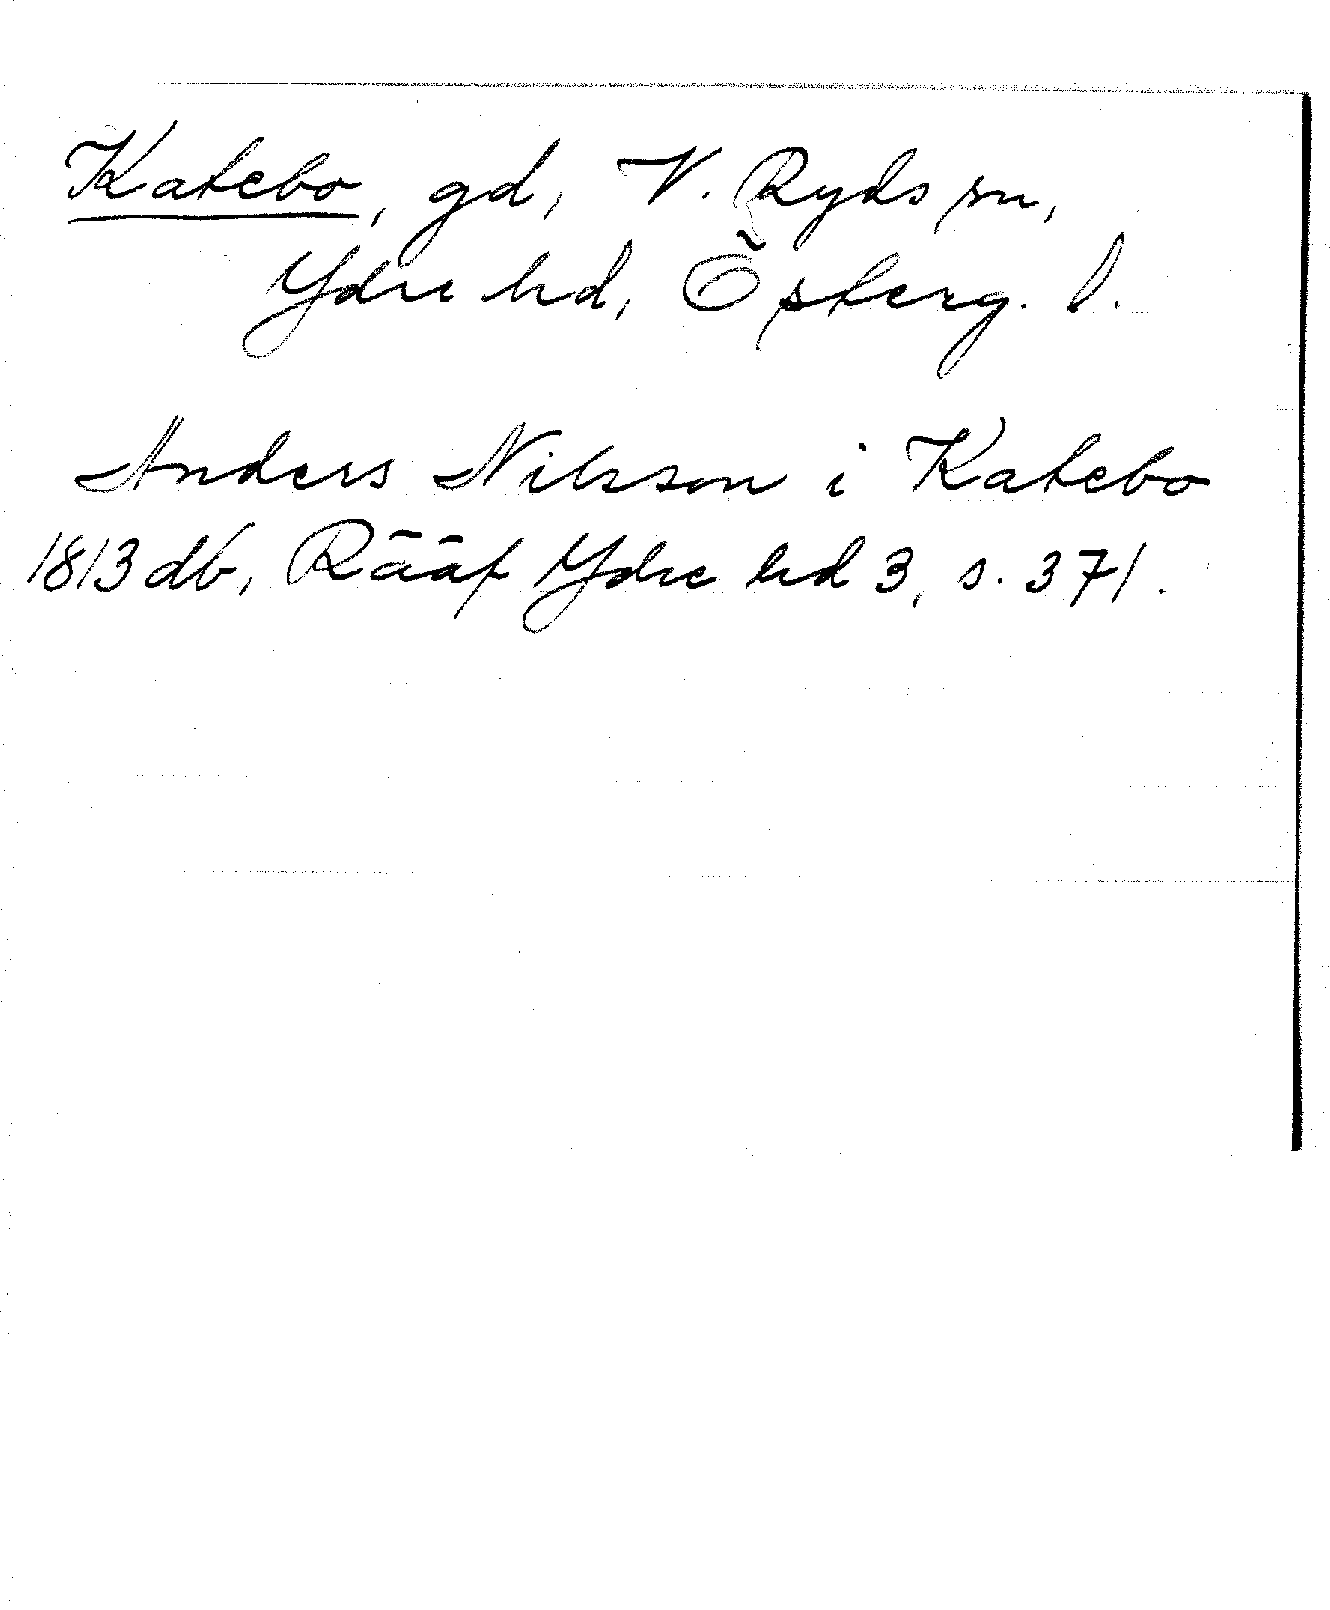 Katebo, gd, V. Ryds sn,
Ydre hd, Österg. l.
Anders Nilsson i Katebo
1813 db, Rääf Ydre hd 3, s. 371.